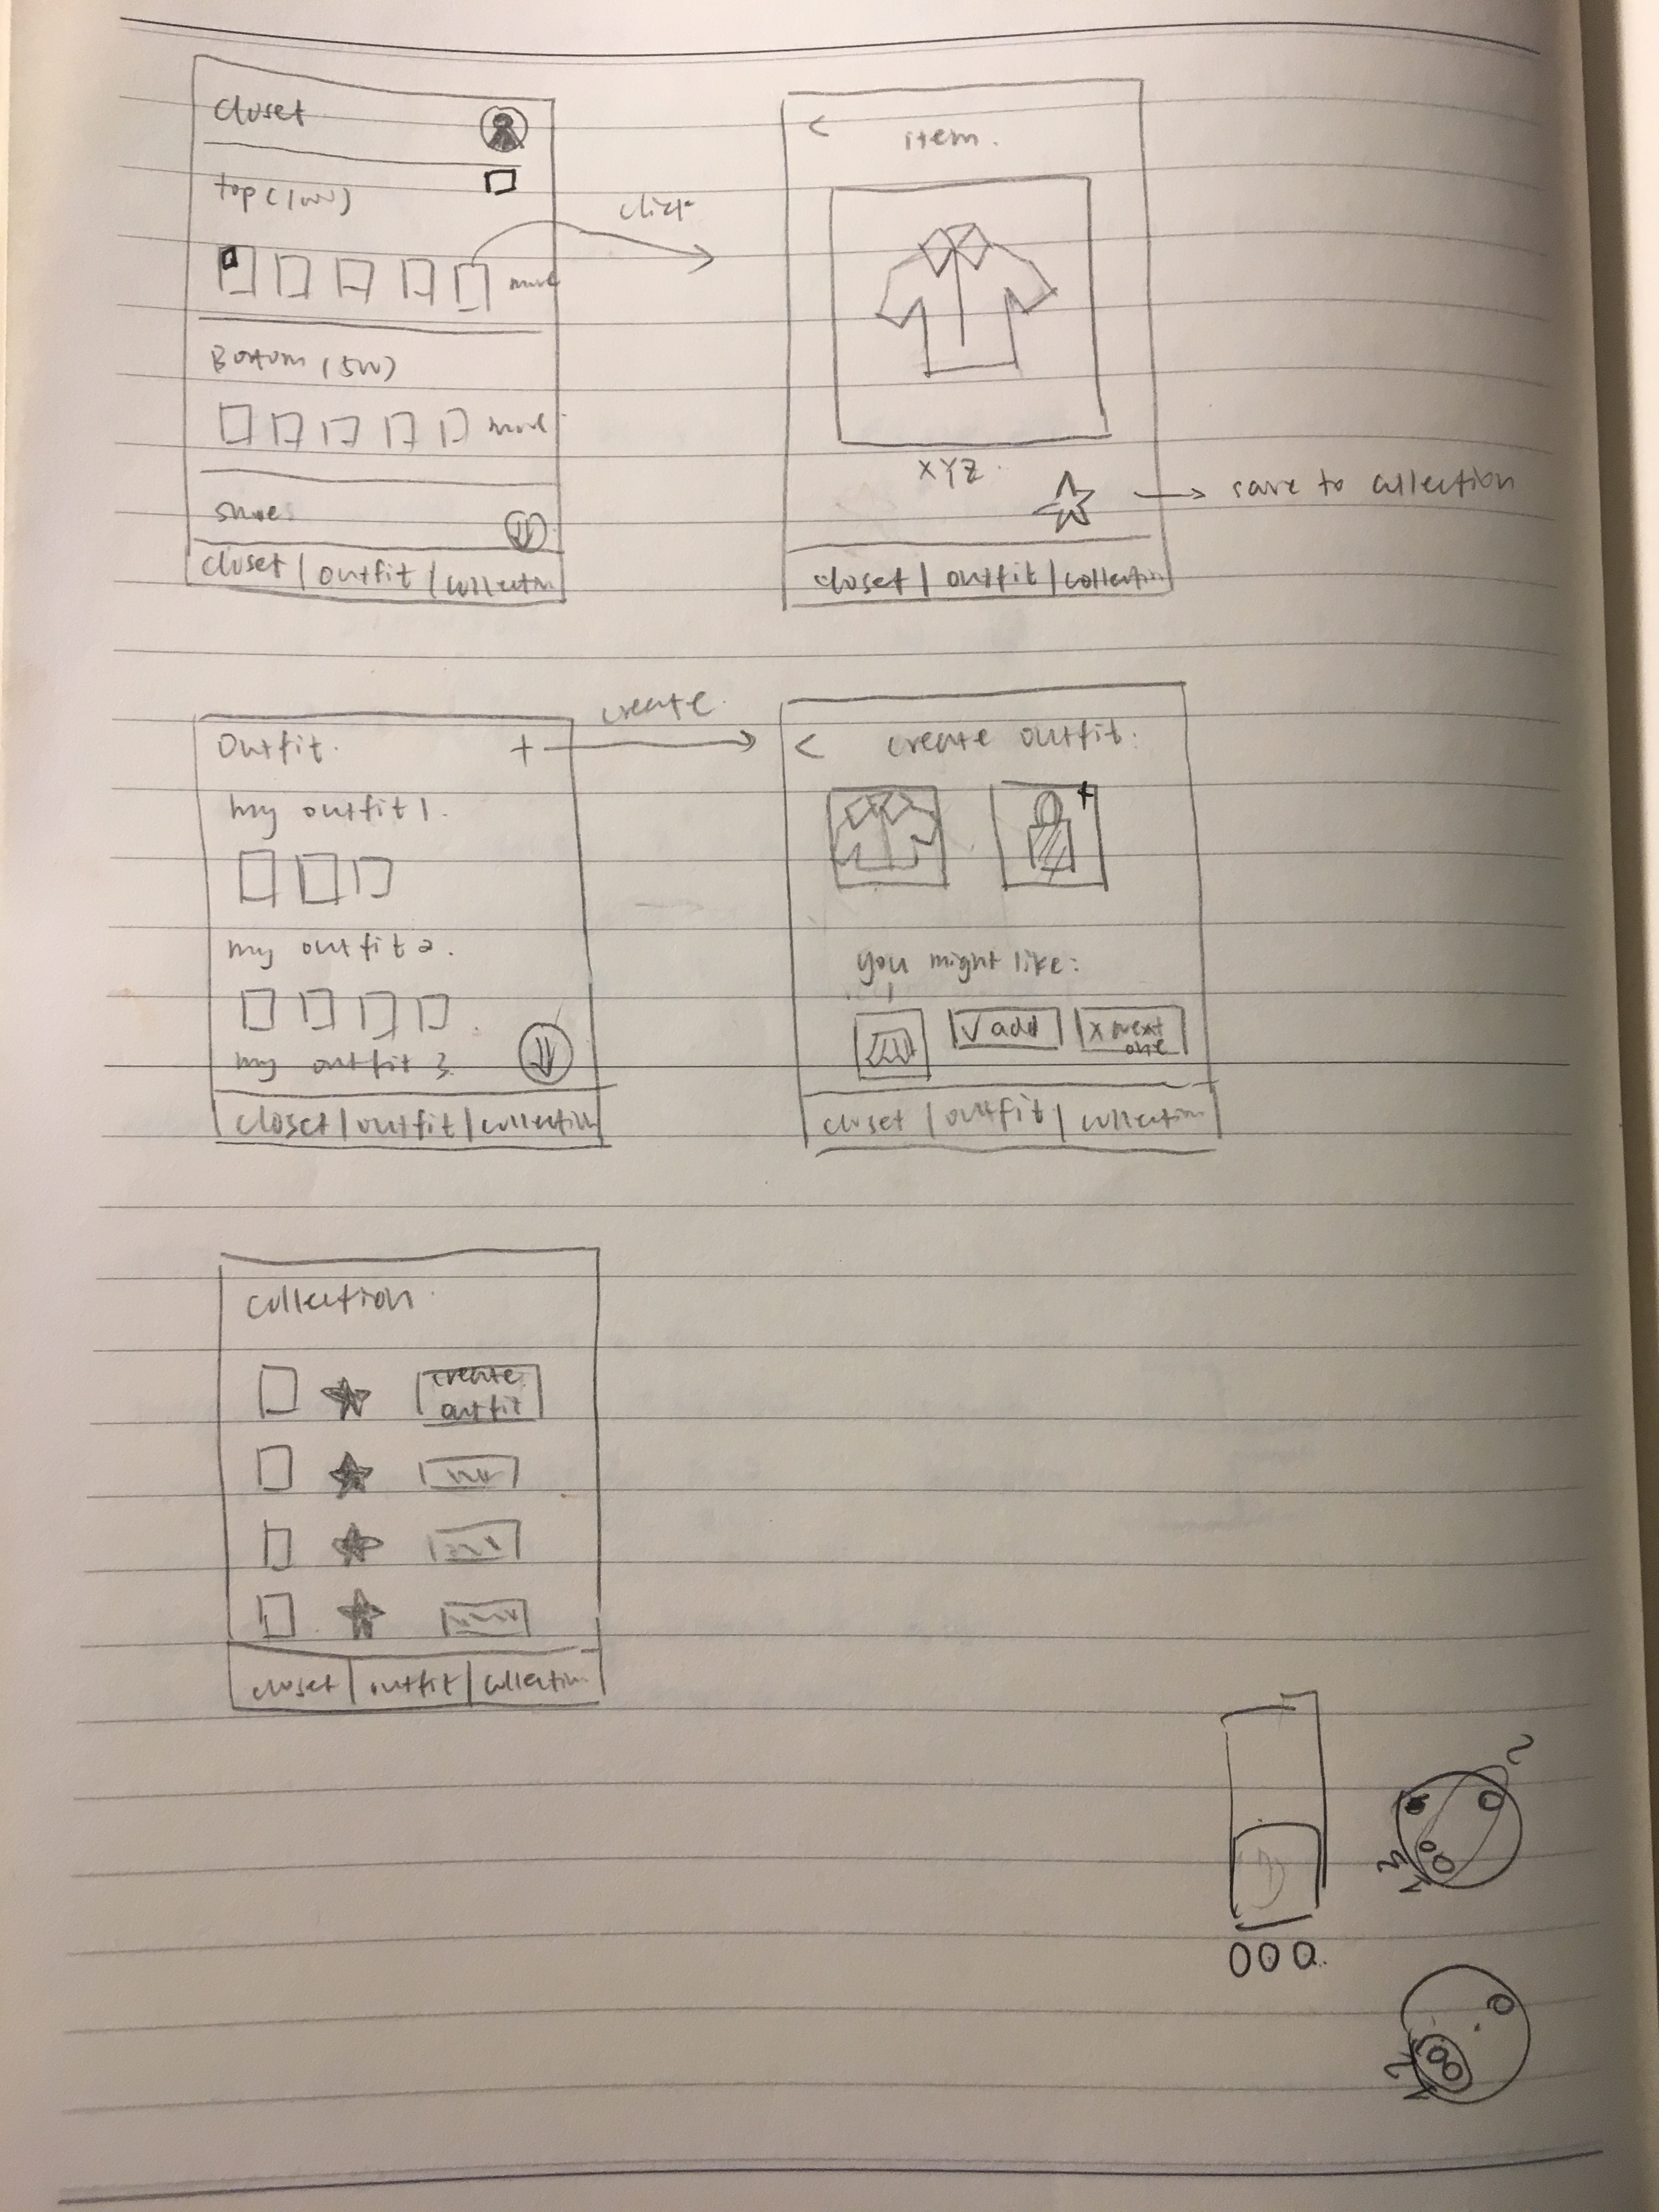 closet
top (100)
click
more
Bottom (50)
more
shoe
closet | outfit | collection
< item.
XYZ.
save to collection
closet | outfit | collection
outfit. +
create
my outfit 1.
my outfit 2.
my outfit 3
closet | outfit | collection
< create outfit.
+
you might like:
√ add
x next
one
closet | outfit | collection
collection
create
outfit
closet | outfit | collection